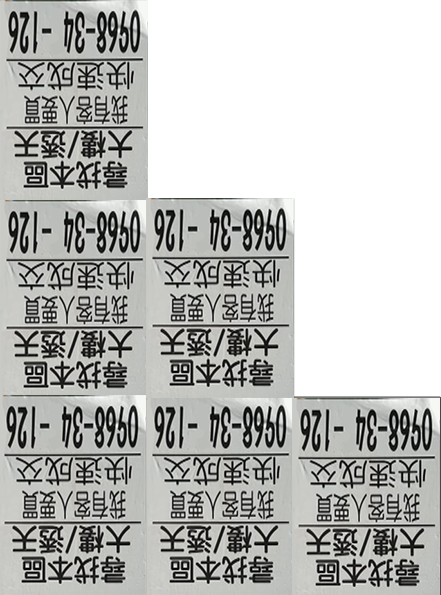 尋找本區
大樓/透天
我有客人要買
快速成交
0968-34 - 126
尋找本區
大樓/透天
我有客人要買
快速成交
0968-34 - 126
尋找本區
大樓/透天
我有客人要買
快速成交
0968-34 - 126
尋找本區
大樓/透天
我有客人要買
快速成交
0968-34 - 126
尋找本區
大樓/透天
我有客人要買
快速成交
0968-34 - 126
尋找本區
大樓/透天
我有客人要買
快速成交
0968-34 - 126